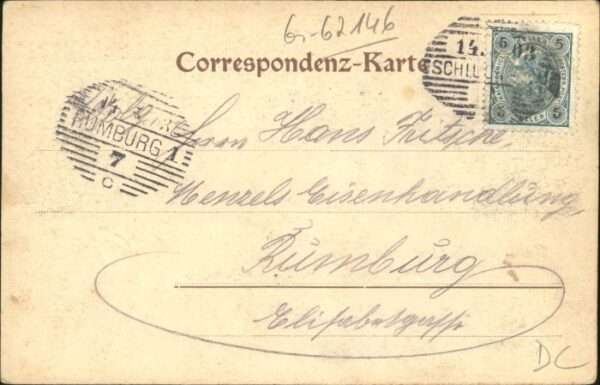 Gr-62146
Correspondenz-Karte
14. 03
SCHLU
5 5
RUMBURG 1
7
C
Herrn Hans Fritsche,
Menzels Eisenhandlung,
Rumburg
Elisabetgasse
DC